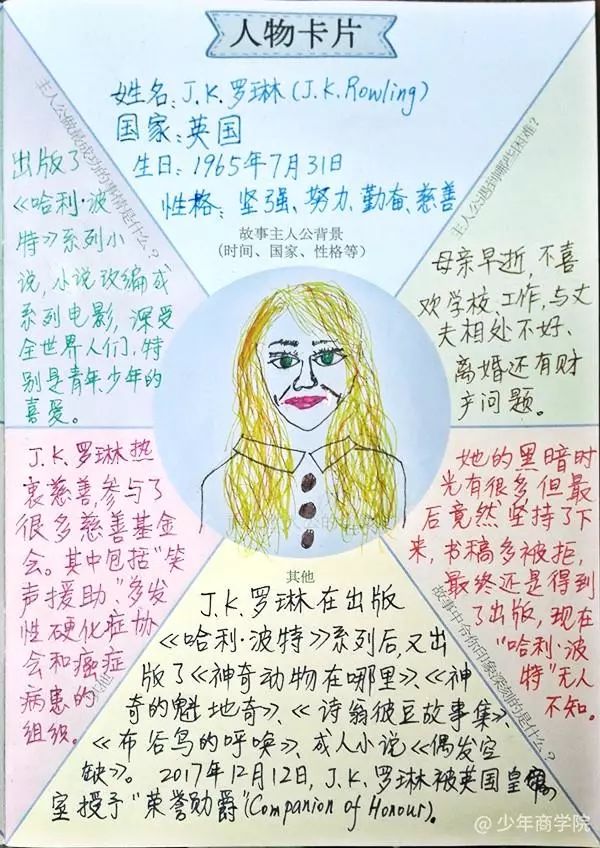 人物卡片
姓名：J.K.罗琳(J.K.Rowling)
国家：英国
生日：1965年7月31日
性格：坚强、努力、勤奋、慈善
故事主人公背景
(时间、国家、性格等)
主人公做最成功的事情是什么？
出版了
《哈利·波
特》系列小
说，小说改编成
系列电影，深受
全世界人们，特
别是青年少年的
喜爱。
主人公遇到哪些困难？
母亲早逝，不喜
欢学校、工作，与丈
夫相处不好、
离婚还有财
产问题。
J.K.罗琳热
衷慈善参与了
很多慈善基金
会。其中包括“笑
声援助”、多发
性硬化症协
会和癌症
病患的
组织。
其他
她的黑暗时
光有很多但最
后竟然坚持了下
来，书稿多被拒，
最终还是得到
了出版，现在
“哈利·波
特”无人
不知。
故事中令你印象深刻的是什么？
其他
J.K.罗琳在出版
《哈利·波特》系列后，又出
版了《神奇动物在哪里》、《神
奇的魁地奇》、《诗翁彼豆故事集》、
《布谷鸟的呼唤》、成人小说《偶发空
缺》。2017年12月12日，J.K.罗琳被英国皇
室授予“荣誉勋爵”(Companion of Honour)。
@少年商学院